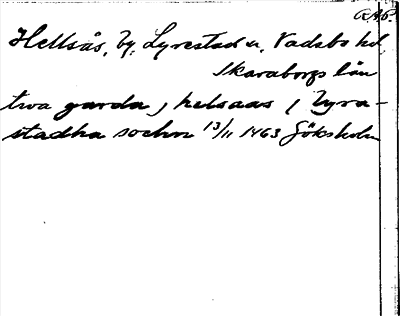 RAP.
Hellsås, by, Lyrestad sn, Vadsbo hd,
Skaraborgs län
twa garda j helsaas j Lyra-
stadha sochn 13/11 1463 Göksholm